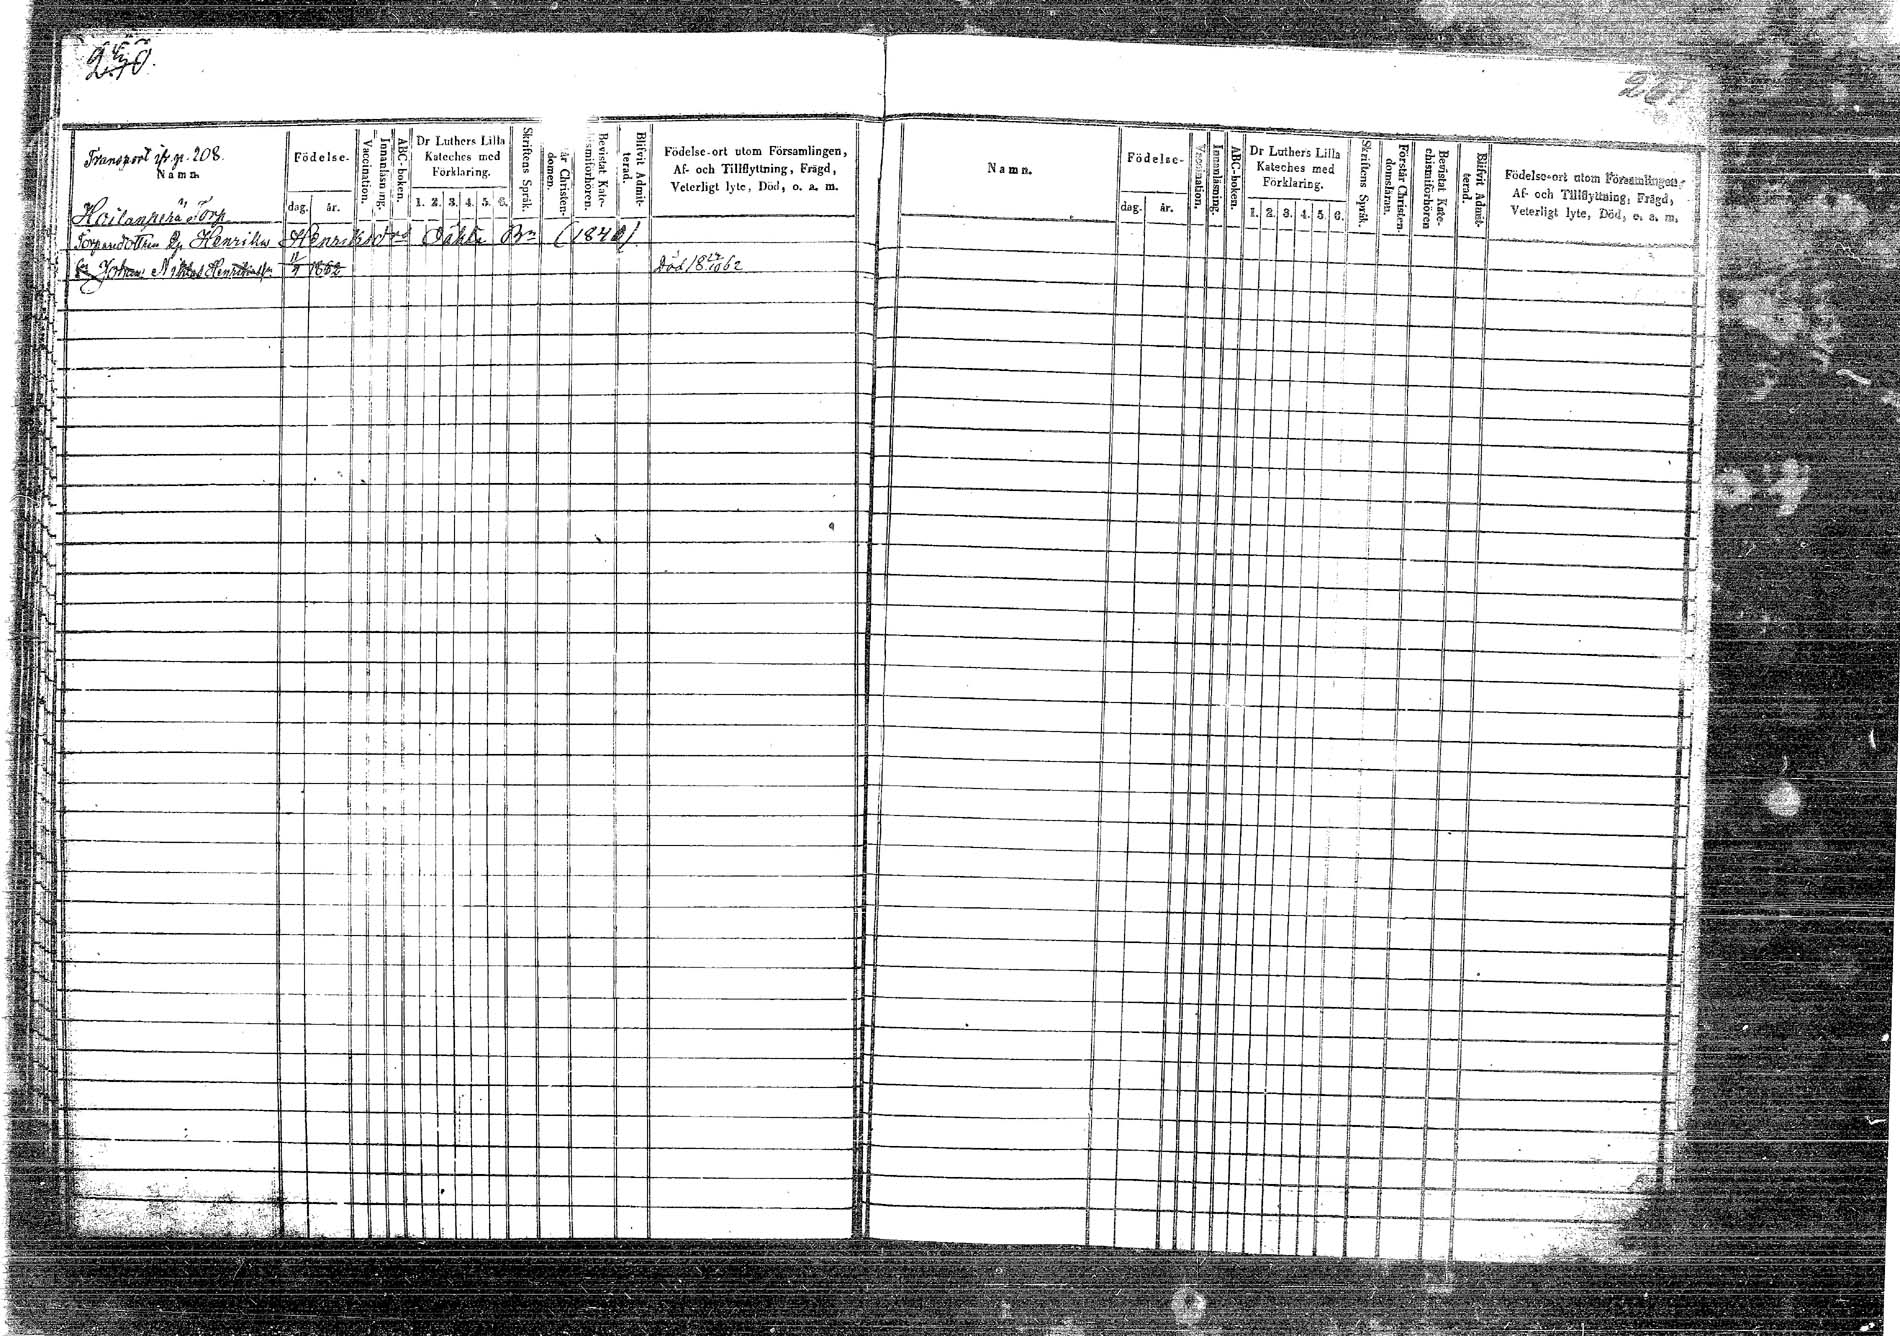 Transport ifr. p. 208.
Namn.
Födelse-
dag.
år.
Vaccination.
Innanläsning.
ABC-boken.
Dr Luthers Lilla
Kateches med
Förklaring.
1. 2. 3. 4. 5. 6.
Skriftens Språk.
år Christen-
domen.
Bevistat Kate-
smiförhören.
Blifvit Admit-
terad.
Födelse-ort utom Församlingen,
Af- och Tillflyttning, Frägd,
Veterligt lyte, Död, o. a. m.
Torp
Henriksd
(1840)
Johan Niklas 1862
Död 18 62
Namn.
Födelse-
dag.
år.
Vaccination.
Innanläsning.
ABC-boken.
Dr Luthers Lilla
Kateches med
Förklaring.
1. 2. 3. 4. 5. 6.
Skriftens Språk.
Förstår Christen-
domsläran.
Bevistat Kate-
chismiförhören
Blifvit Admit-
terad.
Födelse-ort utom Församlingen,
Af- och Tillflyttning, Frägd,
Veterligt lyte, Död, o. a. m.